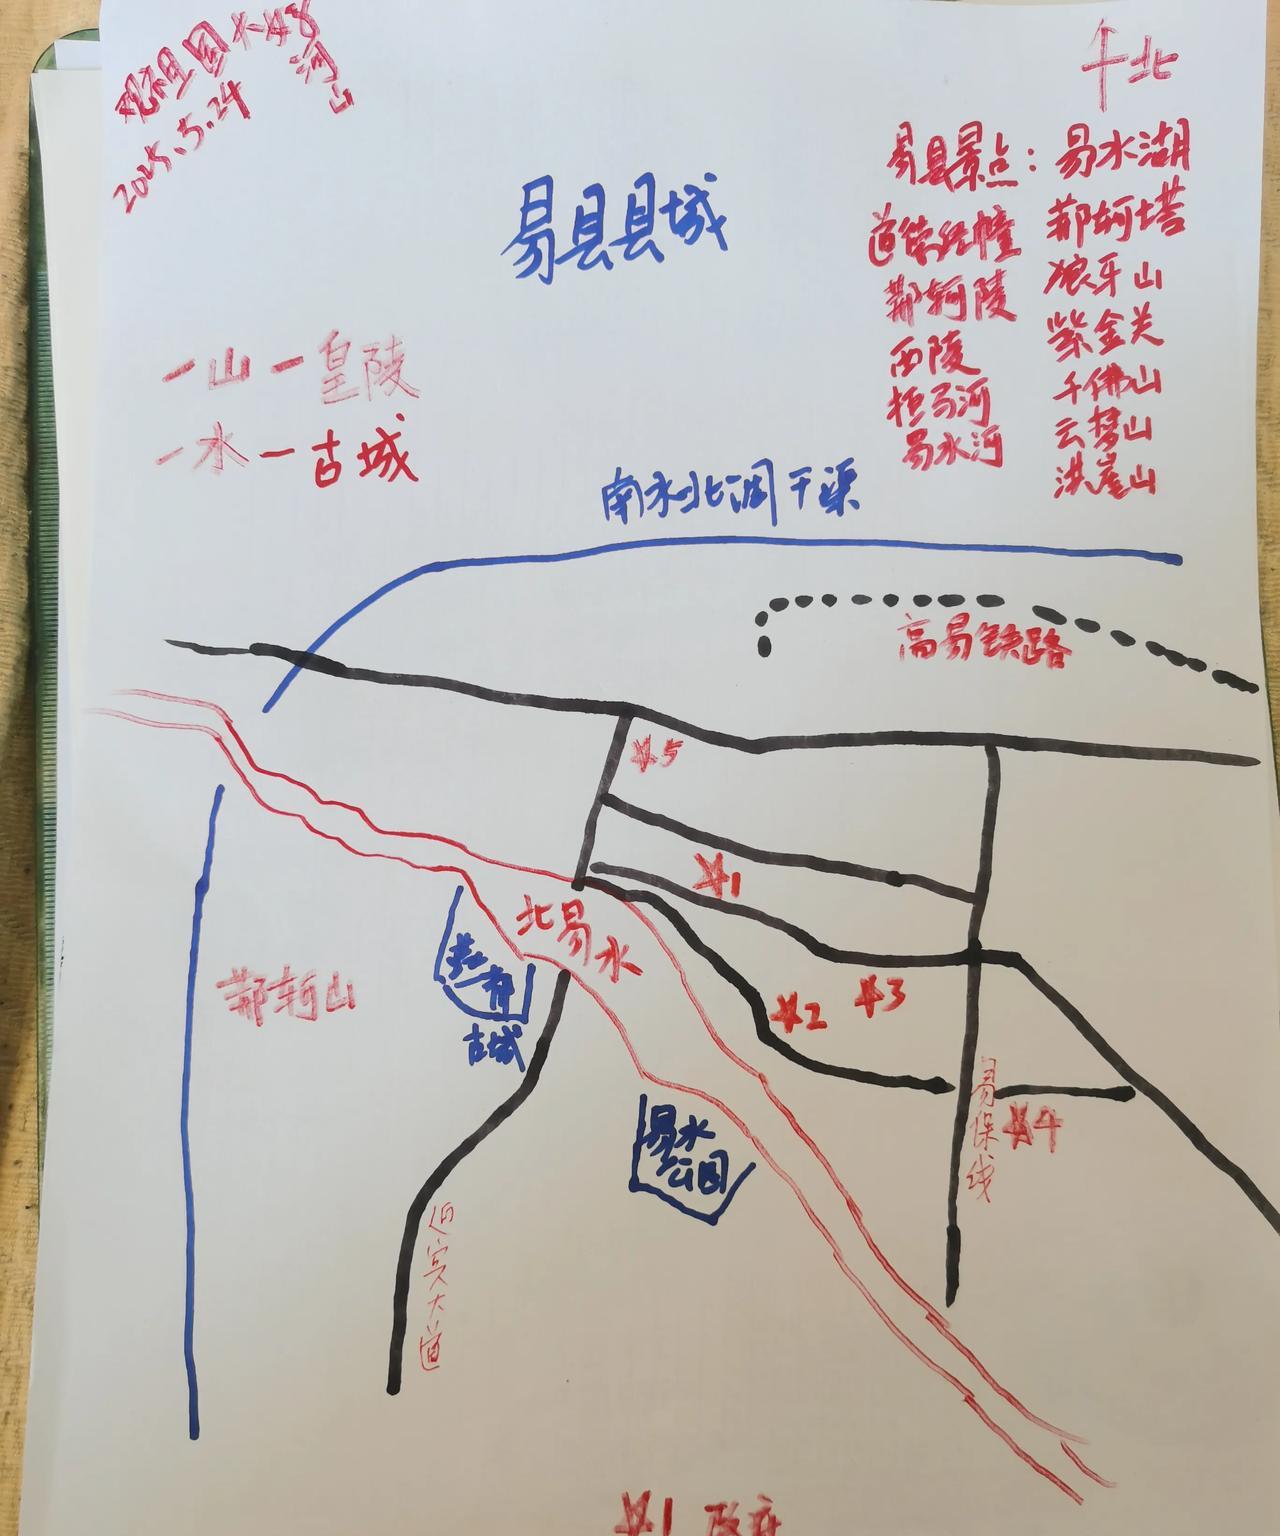 观祖国大好河山
2025.5.24
北
易县县城
易县景点：易水湖
道德经幢 荆轲塔
荆轲陵 狼牙山
西陵 紫金关
拒马河 千佛山
易水河 云梦山
洪崖山
一山一皇陵
一水一古城
南水北调干渠
高易铁路
#5
#1
北易水
荆轲山
古城
#2 #3
易保线
#4
易水公园
大道
#1 政府